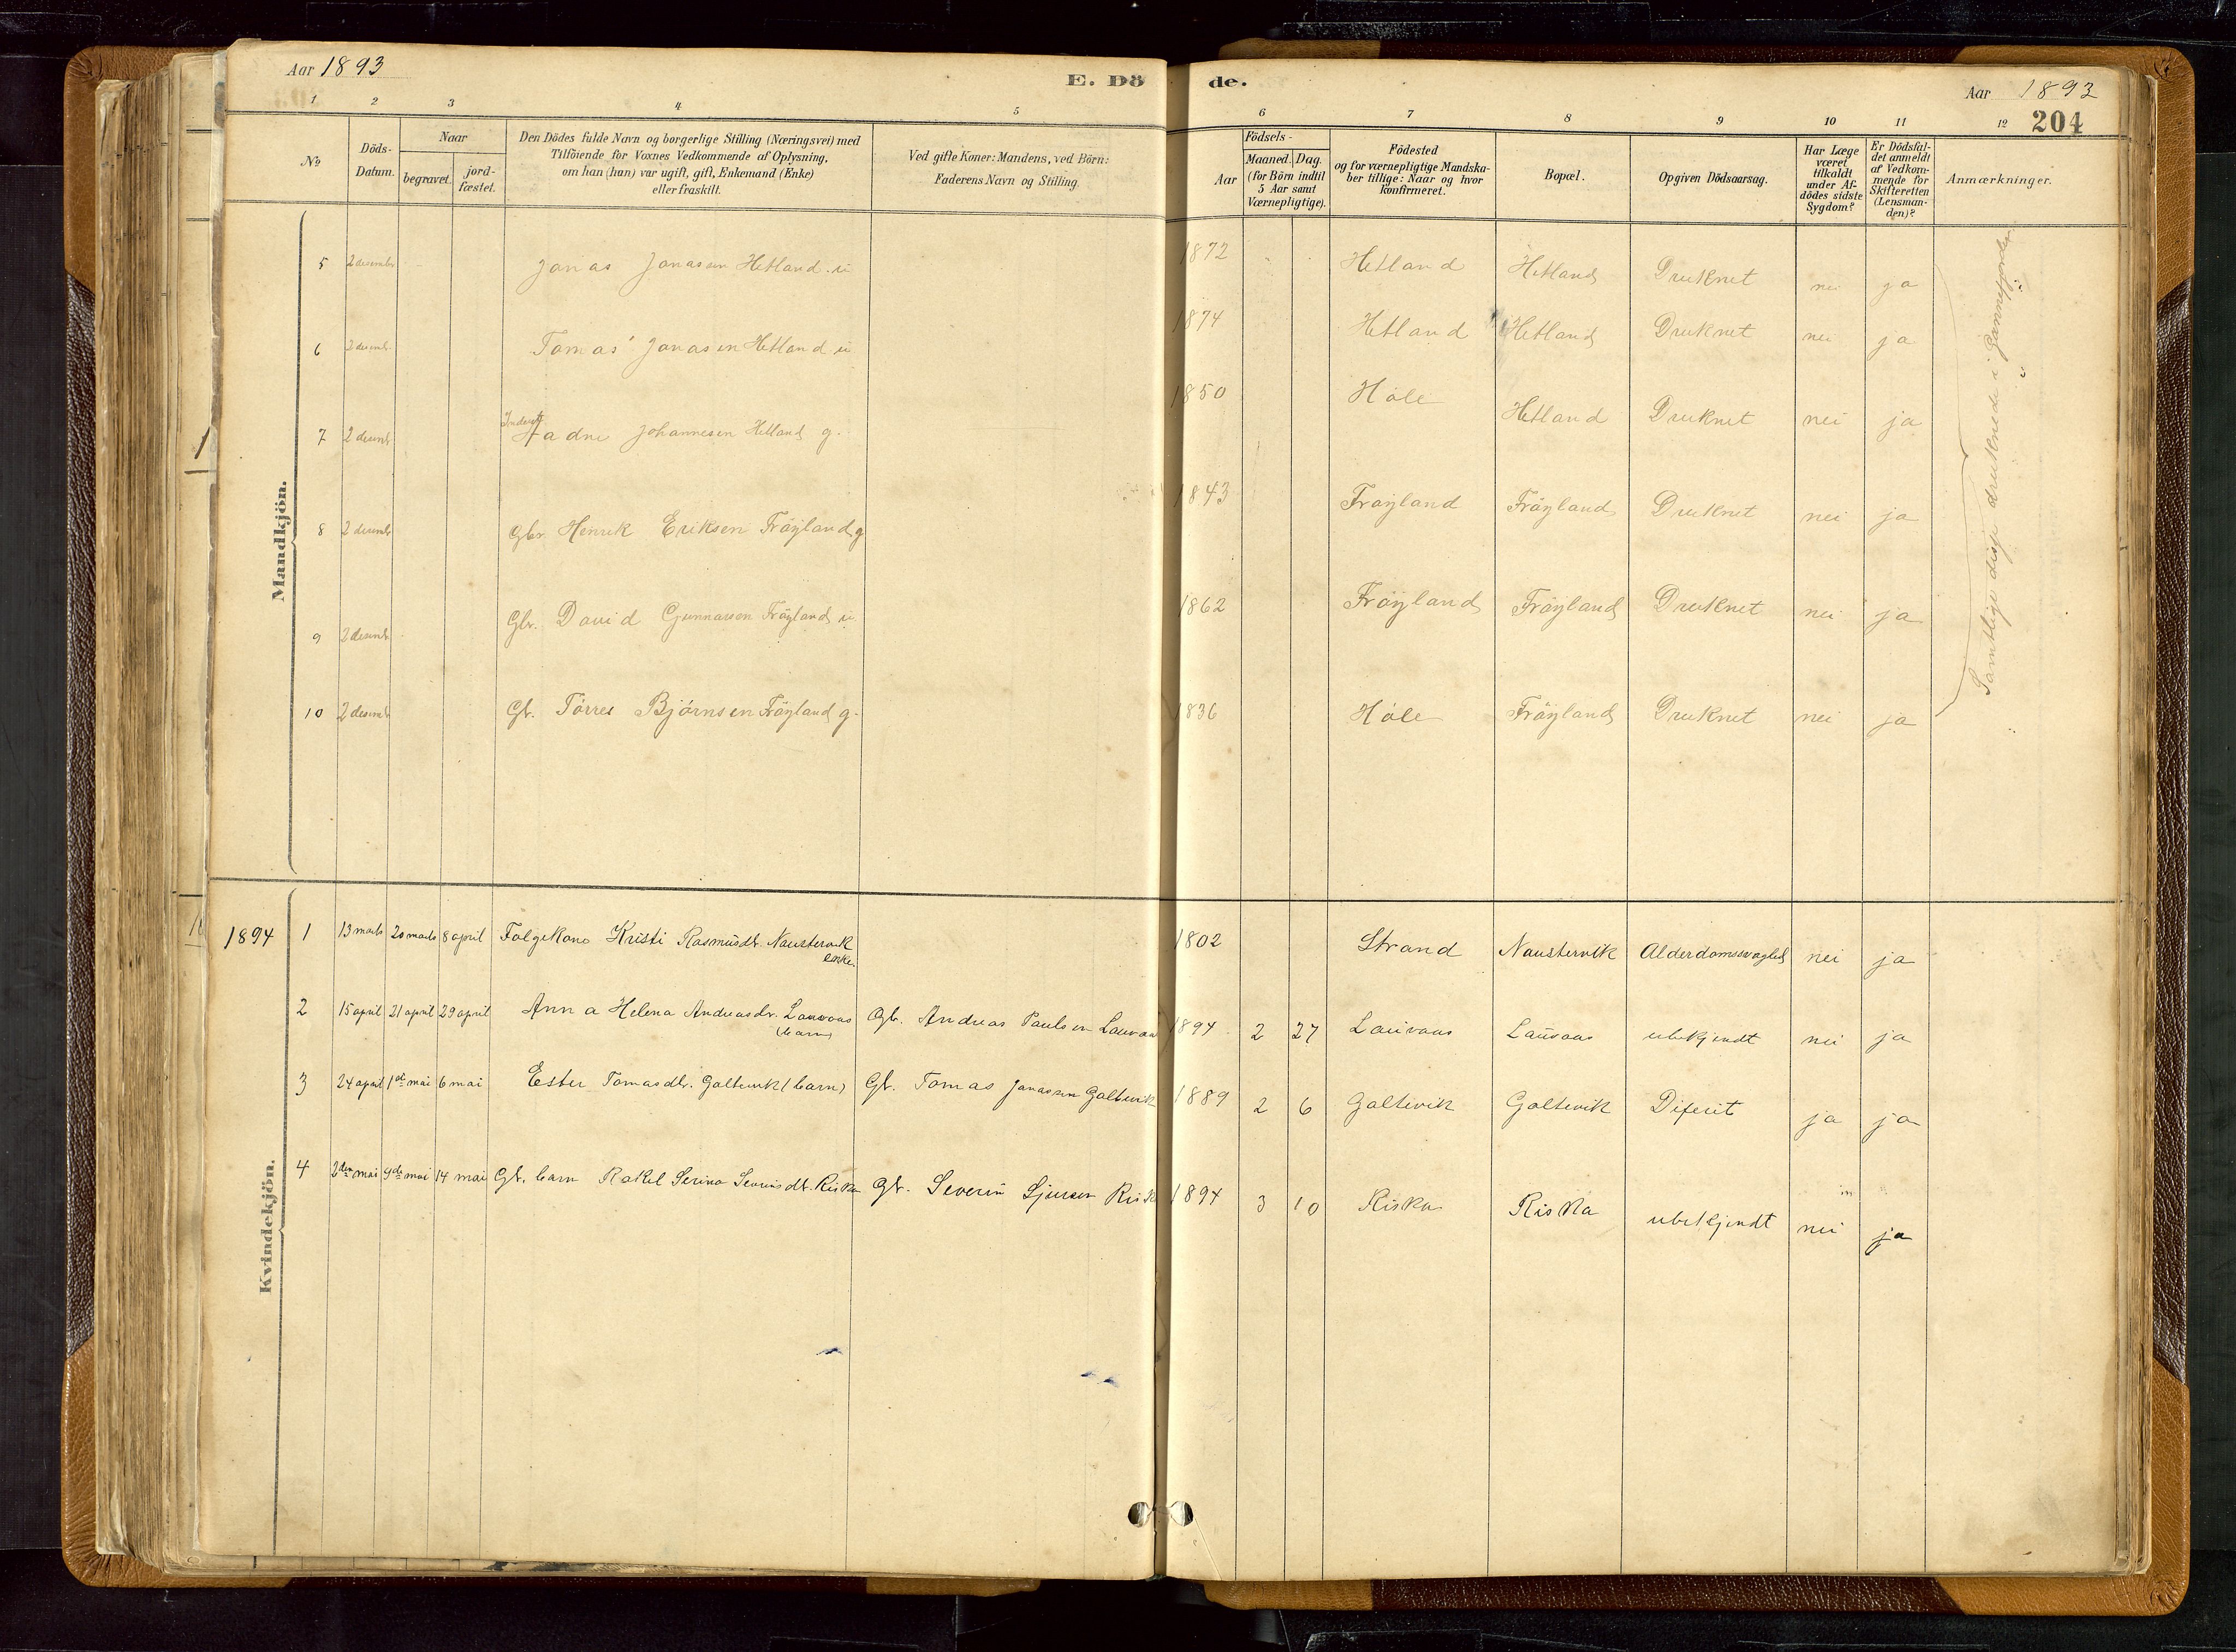 Aar 1893
E. Dö de.
Aar 1893
204
1 2 3 4 5 6 7 8 9 10 11 12
No
Döds-Datum.
Naar
begravet.
jord-fæstet.
Den Dödes fulde Navn og borgerlige Stilling (Næringsvei) med
Tilföiende for Voxnes Vedkommende af Oplysning,
om han (hun) var ugift, gift, Enkemand (Enke)
eller fraskilt.
Ved gifte Koner: Mandens, ved Börn:
Faderens Navn og Stilling.
Födsels-
Aar
Maaned. Dag.
(for Börn indtil
5 Aar samt
Værnepligtige).
Födested
og for værnepligtige Mandska-
ber tillige: Naar og hvor
konfirmeret.
Bopæl.
Opgiven Dödsaarsag.
Har Læge
været
tilkaldt
under Af-
dödes sidste
Sygdom?
Er Dödsfal-
det anmeldt
af Vedkom-
mende for
Skifteretten
(Lensman-
den)?
Anmærkninger.
Mandkjön.
5 2 desember Jonas Jonassen Hetland u 1872 Hetland Hetland Druknet nei ja
6 2 desemb Tomas Jonasen Hetland u 1874 Hetland Hetland Druknet nei ja
7 2 desemb Tadne Johannesen Hetland g. 1850 Hole Hetland Druknet nei ja
8 2 desemb Gbr. Henrik Eriksen Fröyland g 1843 Fröyland Fröyland Druknet nei ja
9 2 desemb Gbr. David Gunnarsen Fröyland u 1862 Fröyland Fröyland Druknet nei ja
10 2 desemb Gb. Törres Björnsen Fröyland g. 1836 Hole Fröyland Druknet nei ja
Samtlige disse druknede i
Kvindekjön.
1894 1 13 marts 20 marts 8 april Folgekone Kristi Rasmusdt. Naustervik 1802 Strand Naustervik Alderdomssvaghed nei ja
enke.
2 15 april 21 april 29 april Anna Helena Andreasdr. Lauvaas Gb. Andreas Paulsen Lauvaas 1894 2 27 Lauvaas Lauvaas ubekjendt nei ja
(barn)
3 24 april 1ste mai 6 mai Ester Tomasdtr. Galtevik (barn) Gb. Tomas Jonassen Galtevik 1889 2 6 Galtevik Galtevik Diferit ja ja
4 2den mai 9de mai 14 mai Gb. barn Rakel Serina Severinsdt. Riska Gb. Severin Sjursen Riska 1894 3 10 Riska Riska ubekjendt nei ja